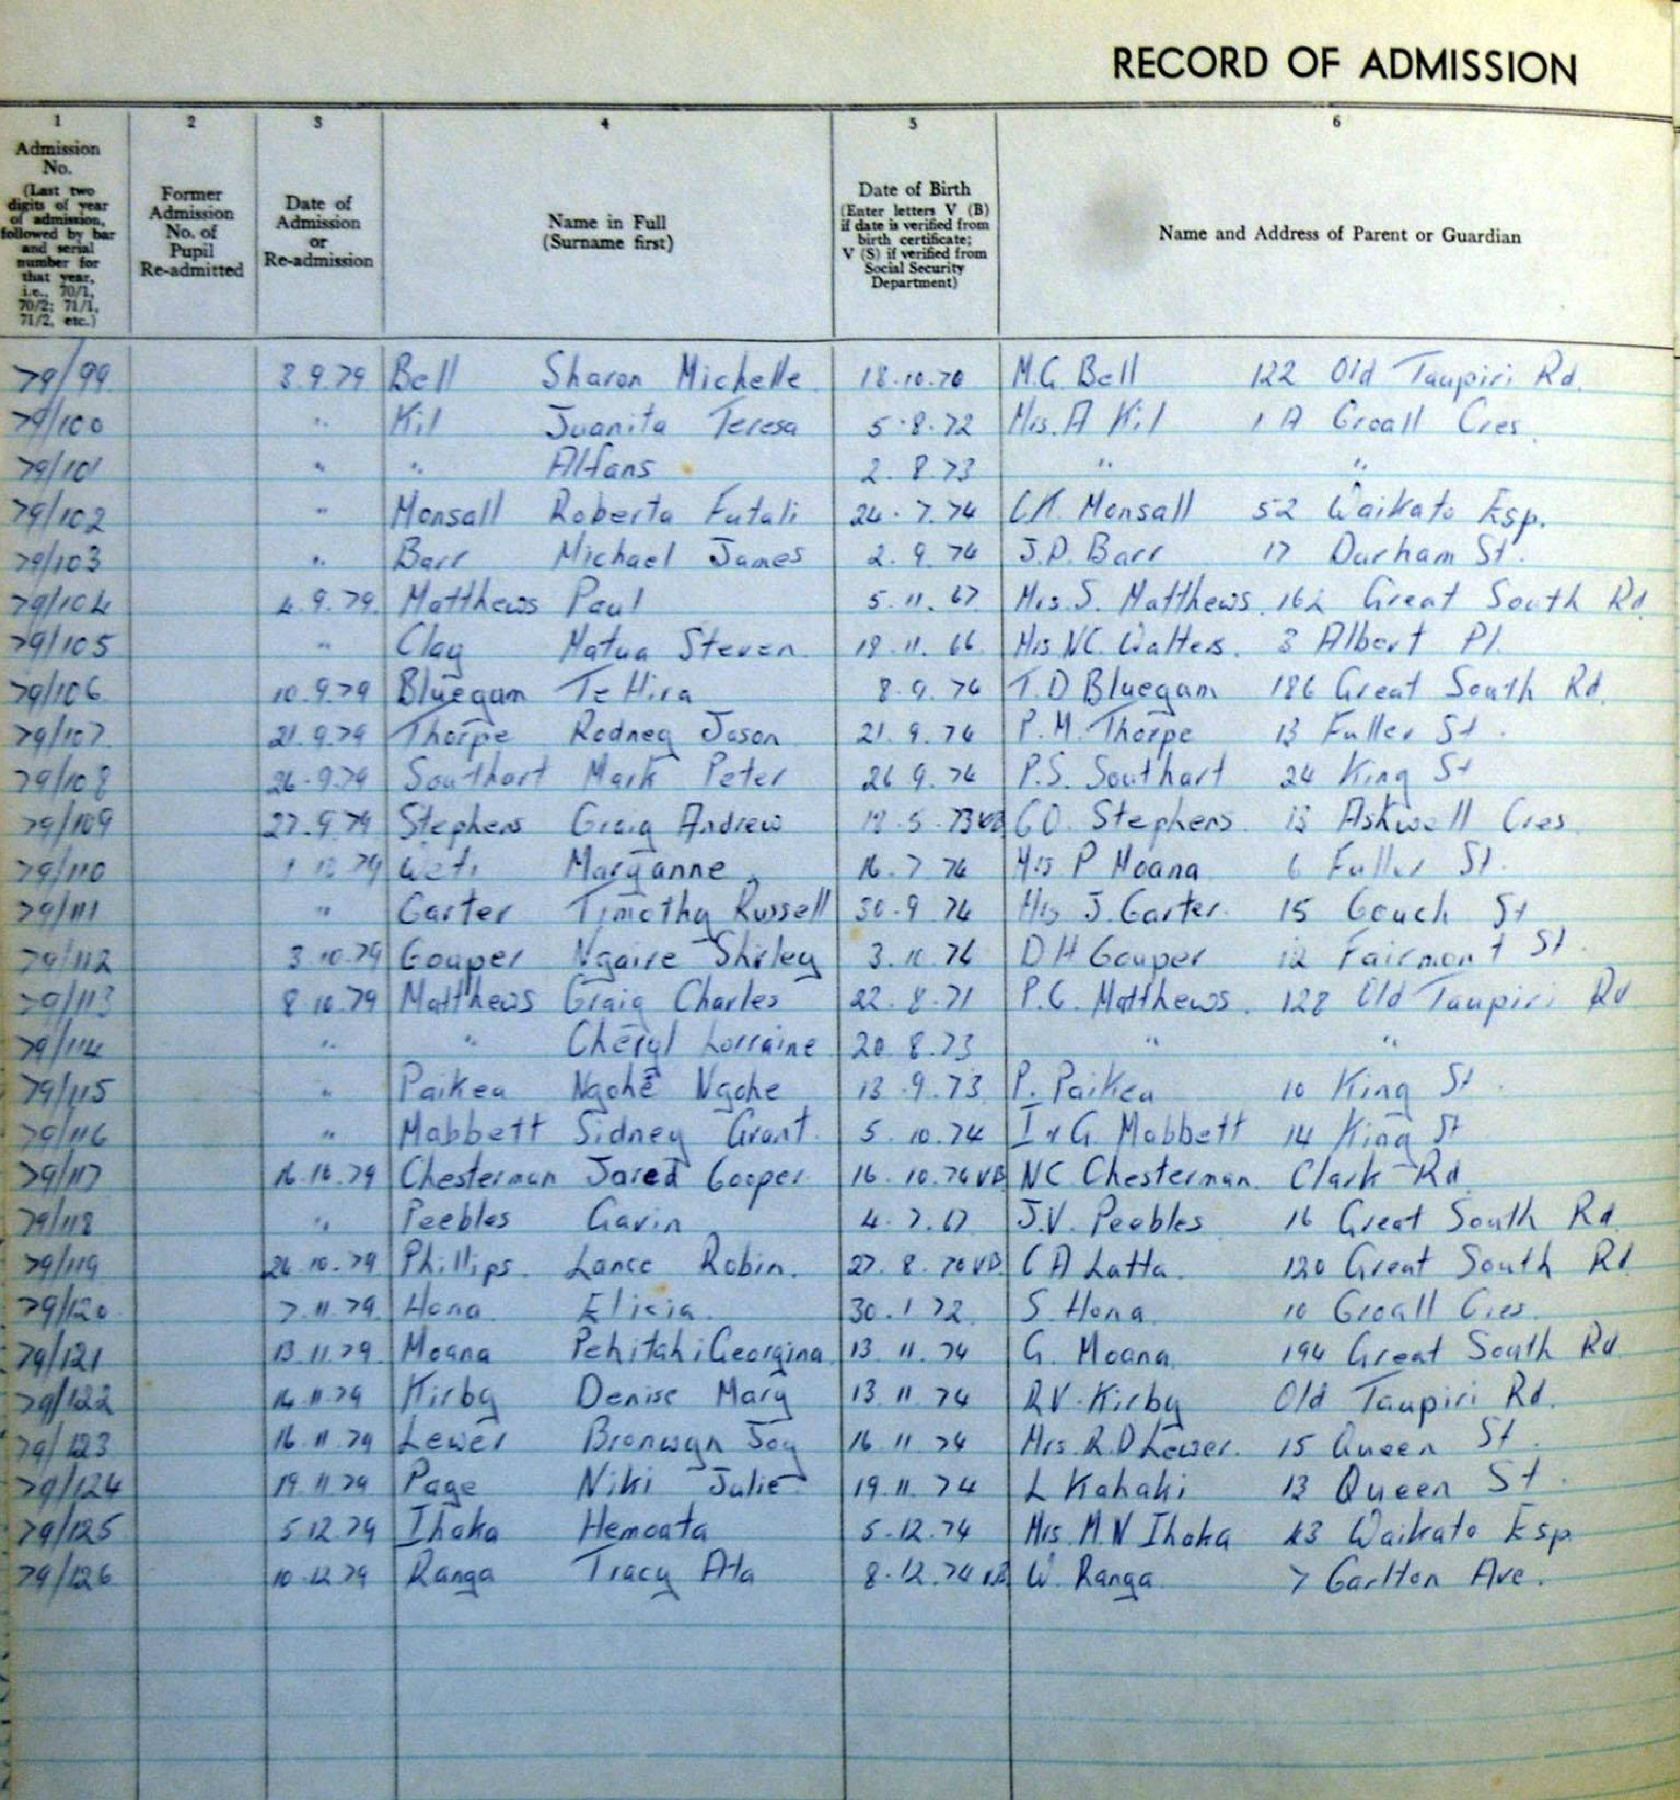 RECORD OF ADMISSION
1 2 3 4 5 6
Admission No. (Last two digits of year of admission, followed by bar and serial number for that year, i.e., 70/1, 70/2; 71/1, 71/2, etc.)
Former Admission No. of Pupil Re-admitted
Date of Admission or Re-admission
Name in Full (Surname first)
Date of Birth (Enter letters V (B) if date is verified from birth certificate; V (S) if verified from Social Security Department)
Name and Address of Parent or Guardian
79/99 3.9.79 Bell Sharon Michelle 18.10.70 M.G. Bell 122 Old Taupiri Rd.
79/100 " Kil Juanita Teresa 5.8.72 Mrs. A Kil 1 A Croall Cres.
79/101 " " Alfans 2.8.73 " "
79/102 " Monsall Roberta Futali 24.7.74 Monsall 52 Waikato Esp.
79/103 " Barr Michael James 2.9.74 J.D. Barr 17 Durham St.
79/104 4.9.79 Matthews Paul 5.11.67 Mrs. S. Matthews. 162 Great South Rd
79/105 " Clay Matua Steven 18.11.66 Mrs NC. Walters. 3 Albert Pl.
79/106 10.9.79 Bluegum Te Hira 8.9.74 T.D Bluegum 186 Great South Rd.
79/107 21.9.79 Thorpe Rodney Jason 21.9.74 P.M. Thorpe 13 Fuller St.
79/108 26.9.79 Southart Mark Peter 26 9.74 P.S. Southart 24 King St
79/109 27.9.79 Stephens Craig Andrew 5.73 VB Stephens 13 Askwell Cres
79/110 1.10.79 Weti Maryanne 16.7 74 Mrs P Moana 6 Fuller St.
79/111 " Carter Timothy Russell 30.9 74 Mrs J. Carter. 15 Gouch St
79/112 3.10.79 Couper Ngaire Shirley 3.10.74 D H Couper 12 Fairmont St.
79/113 8.10.79 Matthews Craig Charles 22.8.71 P.C. Matthews. 128 Old Taupiri Rd
79/114 " " Cheryl Lorraine 20.8.73 " "
79/115 " Paikea Ngohe Ngohe 13.9.73 P. Paikea 10 King St.
79/116 " Mabbett Sidney Grant. 5.10.74 I & G. Mabbett 14 King St
79/117 16.10.79 Chesterman Jared Cooper 16.10.74 VB NC Chesterman. Clark Rd
79/118 " Peebles Gavin 4.7.67 J.V. Peebles 16 Great South Rd
79/119 24.10.79 Phillips. Lance Robin. 27.8.70 VB. C A Latta. 120 Great South Rd.
79/120 7.11.79 Hona Elicia 30.1 72 S. Hona 10 Croall Cres
79/121 13.11.79. Moana Pehitahi Georgina 13.11.74 G. Moana. 194 Great South Rd
79/122 14.11.79 Kirby Denise Mary 13 11 74 R.V. Kirby Old Taupiri Rd.
79/123 16.11.79 Lewer Bronwyn Joy 16 11 74 Mrs. R.D Lewer. 15 Queen St.
79/124 19.11.79 Page Niki Julie 19.11.74 L Kahaki 13 Queen St.
79/125 5.12.79 Ihaka Hemoata 5.12.74 Mrs. M.N Ihaka 43 Waikato Esp.
79/126 10.12.79 Ranga Tracy Ata 8.12.74 VB W. Ranga 7 Carlton Ave.